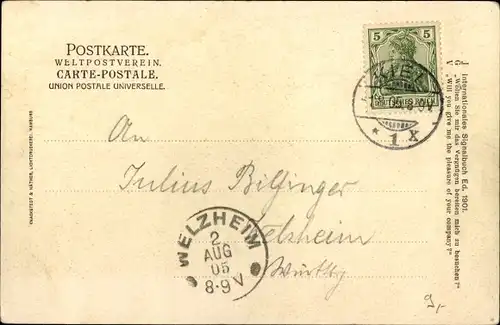 POSTKARTE.
WELTPOSTVEREIN.
CARTE-POSTALE.
UNION POSTALE UNIVERSELLE.
5 5
DEUTSCHES REICH
KIEL
* 1 X
J Internationales Signalbuch Ed. 1901.
G „Wollen Sie mir das Vergnügen bereiten mich zu besuchen?"
V „Will you give me the pleasure of your company?"
KNACKSTEDT & NÄTHER, LICHTDRUCKEREI, HAMBURG
An
Julius Bilfinger
Welzheim
Württbg
WELZHEIM
2
AUG
05
8-9 V
9,-